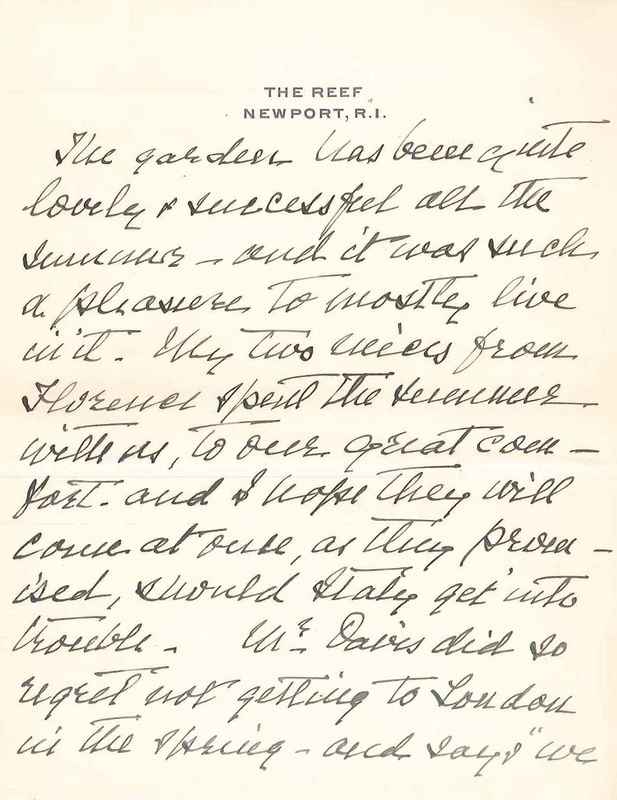 THE REEF
NEWPORT, R.I.
The garden has been quite
lovely & successful all the
summer – and it was such
a pleasure to mostly live
in it. My two nieces from
Florence spent the summer
with us, to our great com –
fort. and I hope they will
come at once, as they prom –
ised, should Italy get into
trouble – Mr. Davis did so
regret not getting to London
in the spring – and says "we